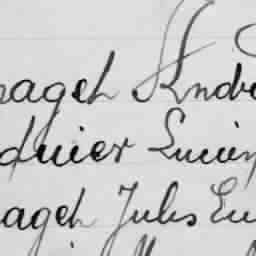 nageh Andr
dinier Lucien
ageh Jules Eu